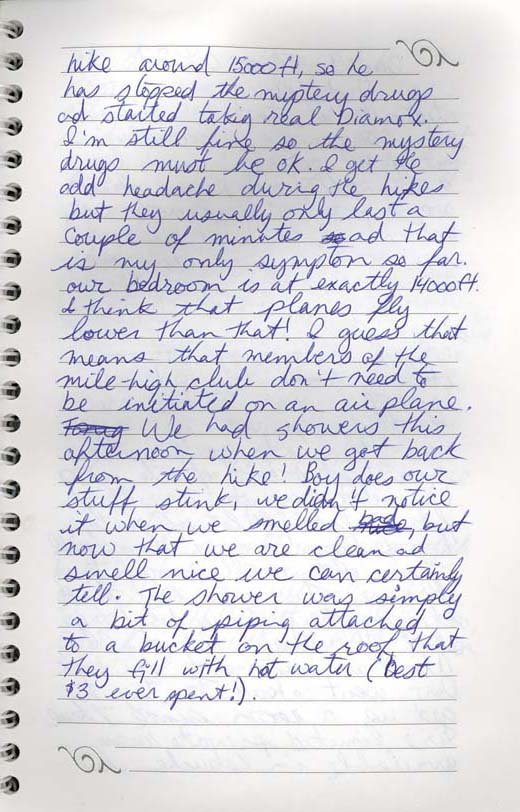 hike around 15000ft, so he
has stopped the myptery drugs
ad started takig real Diamox.
I'm still fine so the mystery
drugs must be ok. I get the
odd headache durig the hikes
but they usually only last a
couple of minutes so ad that
is my only sympton so far.
our bedroom is at exactly 14000ft.
I think that planes fly
lower than that! I guess that
means that members of the
mile-high club don't need to
be initiated on an air plane.
We had showers this
afternoon when we got back
from the hike! Boy does our
stuff stink, we didn't notice
it when we smelled bad, but
now that we are clean ad
smell nice we can certainly
tell. The shower was simply
a bit of piping attached
to a bucket on the roof that
they fill with hot water (best
$3 ever spent!).